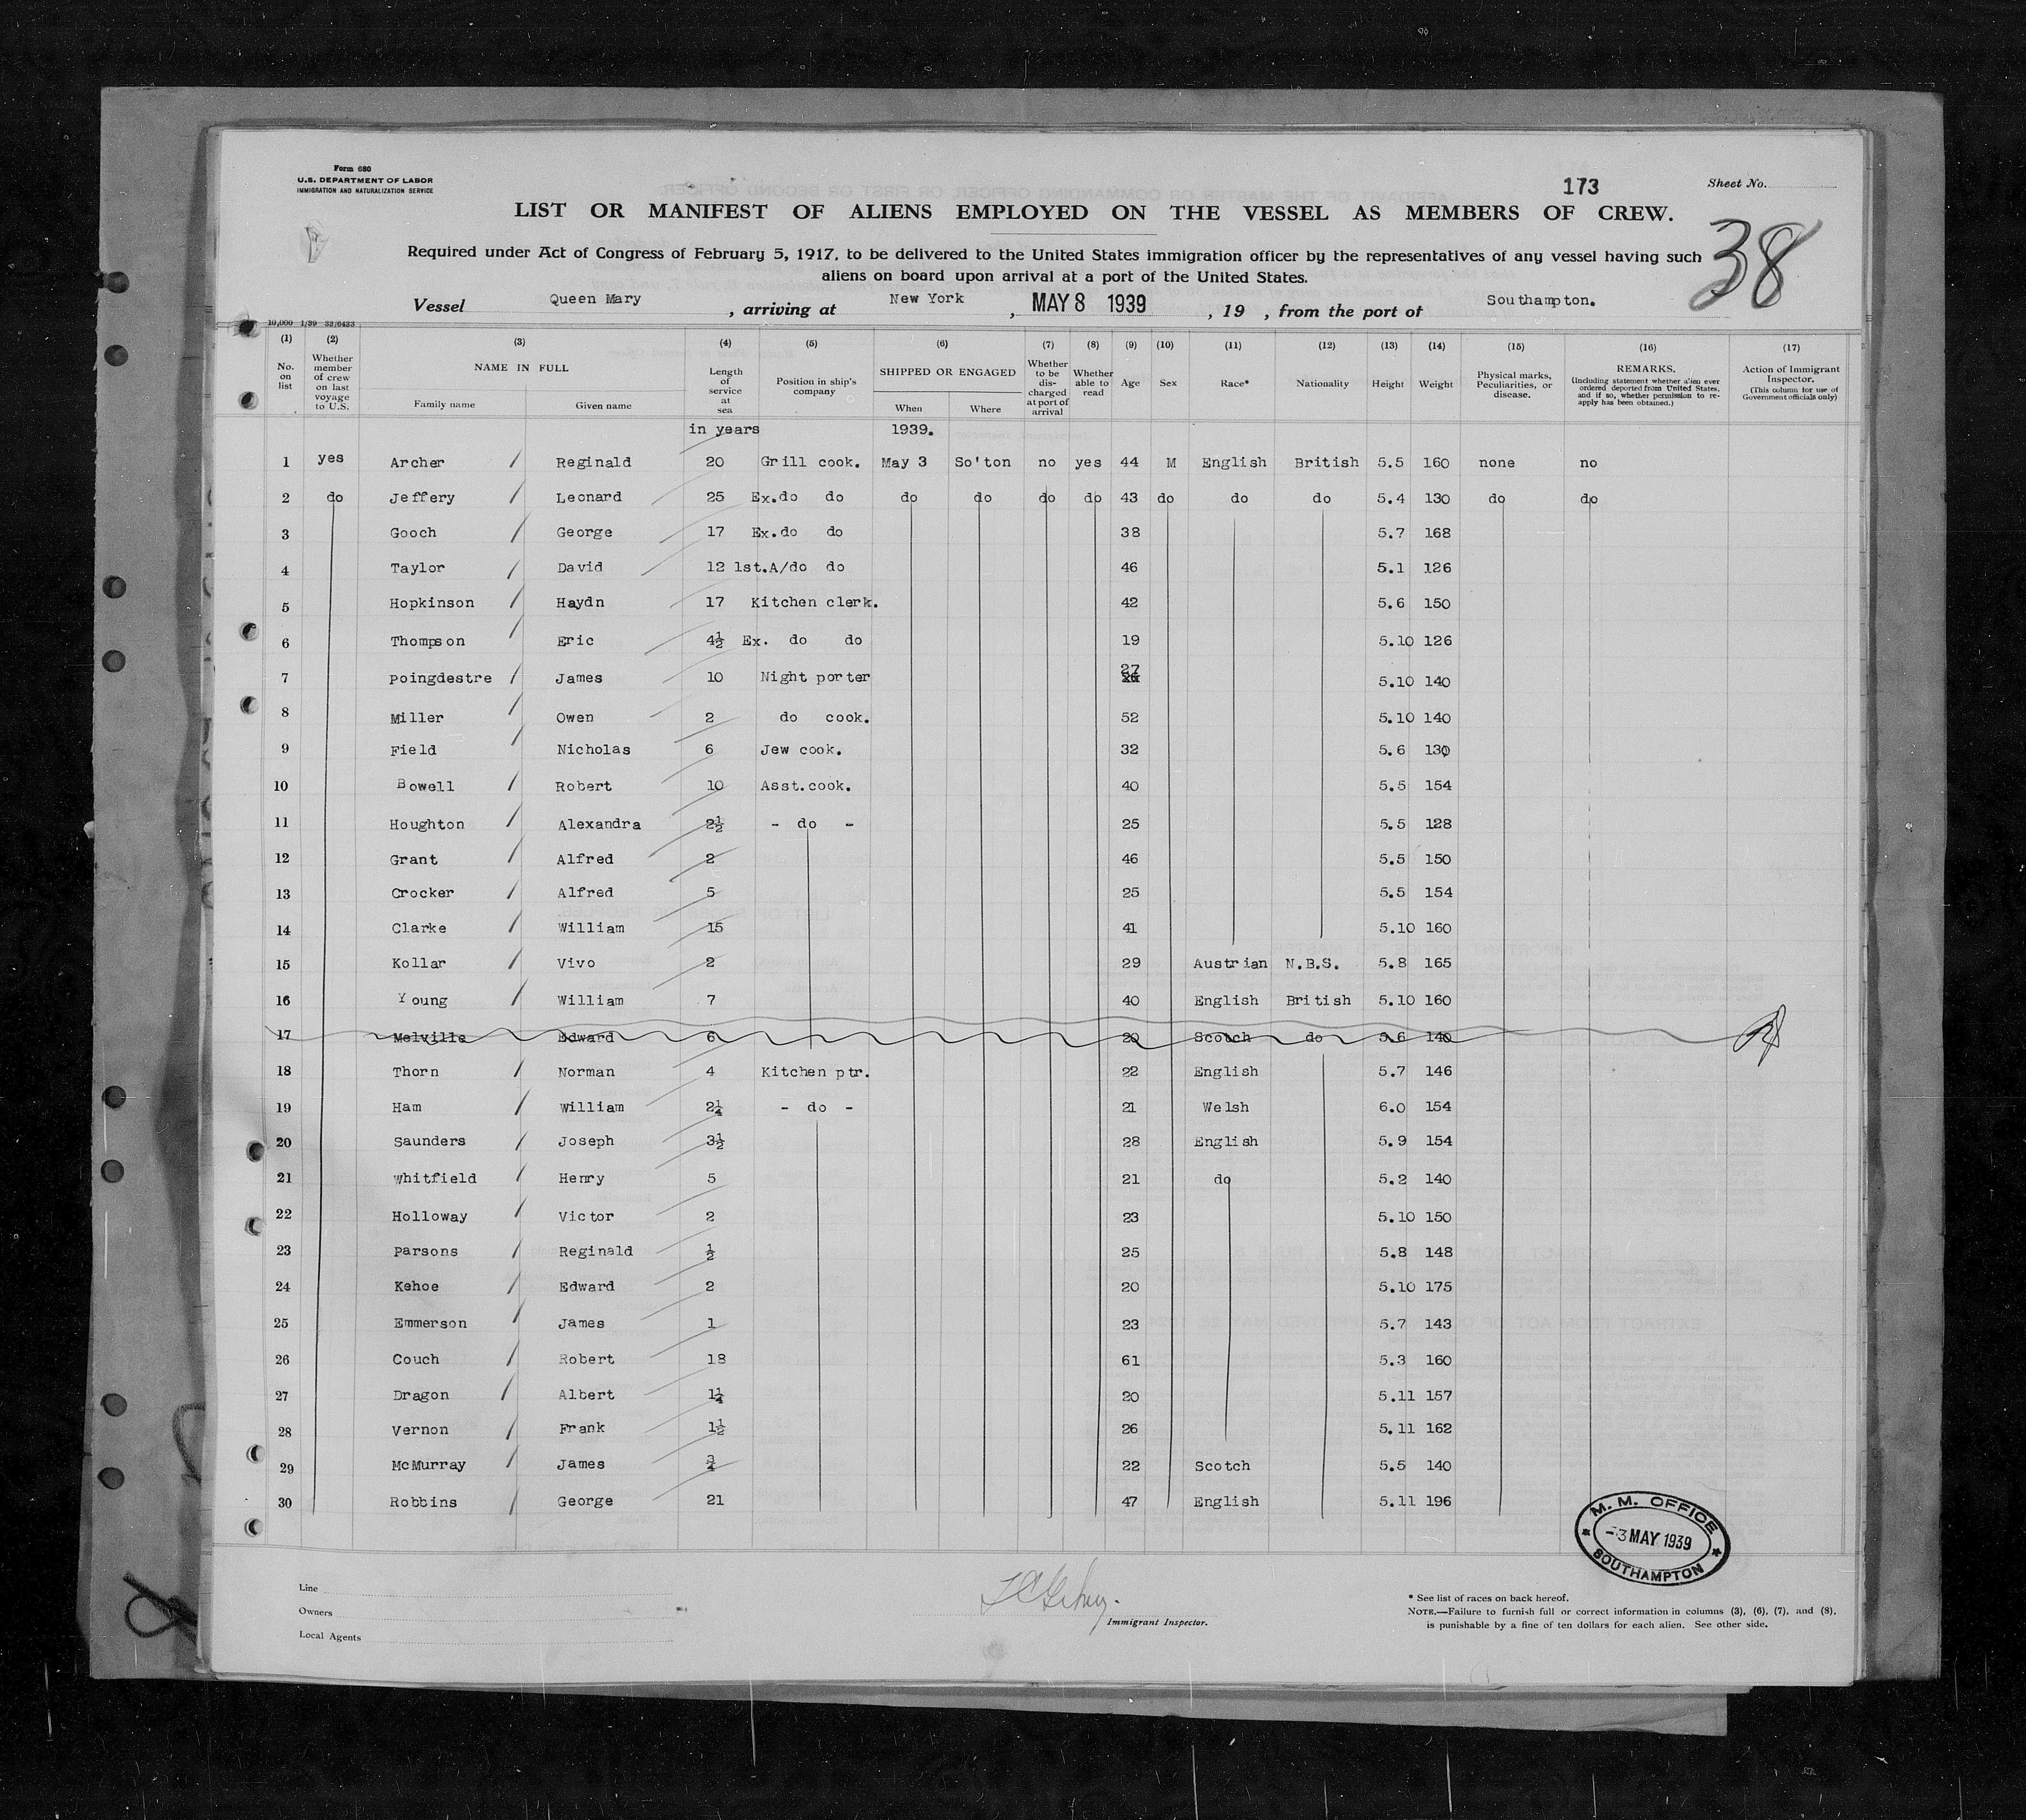 Form 680
U.S. DEPARTMENT OF LABOR
IMMIGRATION AND NATURALIZATION SERVICE
173
Sheet No.
LIST OR MANIFEST OF ALIENS EMPLOYED ON THE VESSEL AS MEMBERS OF CREW.
38
Required under Act of Congress of February 5, 1917, to be delivered to the United States immigration officer by the representatives of any vessel having such
aliens on board upon arrival at a port of the United States.
Vessel Queen Mary , arriving at New York , MAY 8 1939 , 19 , from the port of Southampton.
10,000 1/39 33/6433
(1) (2) (3) (4) (5) (6) (7) (8) (9) (10) (11) (12) (13) (14) (15) (16) (17)
No. on list Whether member of crew on last voyage to U.S. NAME IN FULL Family name Given name Length of service at sea Position in ship's company SHIPPED OR ENGAGED When Where Whether to be discharged at port of arrival Whether able to read Age Sex Race* Nationality Height Weight Physical marks, Peculiarities, or disease. REMARKS. (Including statement whether alien ever ordered deported from United States, and if so, whether permission to re-apply has been obtained.) Action of Immigrant Inspector. (This column for use of Government officials only)
in years 1939.
1 yes Archer Reginald 20 Grill cook. May 3 So'ton no yes 44 M English British 5.5 160 none no
2 do Jeffery Leonard 25 Ex.do do do do do do 43 do do do 5.4 130 do do
3 Gooch George 17 Ex.do do 38 5.7 168
4 Taylor David 12 1st.A/do do 46 5.1 126
5 Hopkinson Haydn 17 Kitchen clerk. 42 5.6 150
6 Thompson Eric 4½ Ex. do do 19 5.10 126
7 Poingdestre James 10 Night porter 27 5.10 140
8 Miller Owen 2 do cook. 52 5.10 140
9 Field Nicholas 6 Jew cook. 32 5.6 130
10 Bowell Robert 10 Asst.cook. 40 5.5 154
11 Houghton Alexandra 2½ - do - 25 5.5 128
12 Grant Alfred 2 46 5.5 150
13 Crocker Alfred 5 25 5.5 154
14 Clarke William 15 41 5.10 160
15 Kollar Vivo 2 29 Austrian N.B.S. 5.8 165
16 Young William 7 40 English British 5.10 160
17 Melville Edward 6 20 Scotch do 5.6 140
18 Thorn Norman 4 Kitchen ptr. 22 English 5.7 146
19 Ham William 2¼ - do - 21 Welsh 6.0 154
20 Saunders Joseph 3½ 28 English 5.9 154
21 Whitfield Henry 5 21 do 5.2 140
22 Holloway Victor 2 23 5.10 150
23 Parsons Reginald ½ 25 5.8 148
24 Kehoe Edward 2 20 5.10 175
25 Emmerson James 1 23 5.7 143
26 Couch Robert 18 61 5.3 160
27 Dragon Albert 1¼ 20 5.11 157
28 Vernon Frank 1½ 26 5.11 162
29 McMurray James ¾ 22 Scotch 5.5 140
30 Robbins George 21 47 English 5.11 196
M. M. OFFICE
-3 MAY 1939
SOUTHAMPTON
Line
Owners
Local Agents
Immigrant Inspector.
* See list of races on back hereof.
NOTE.—Failure to furnish full or correct information in columns (3), (6), (7), and (8),
is punishable by a fine of ten dollars for each alien. See other side.